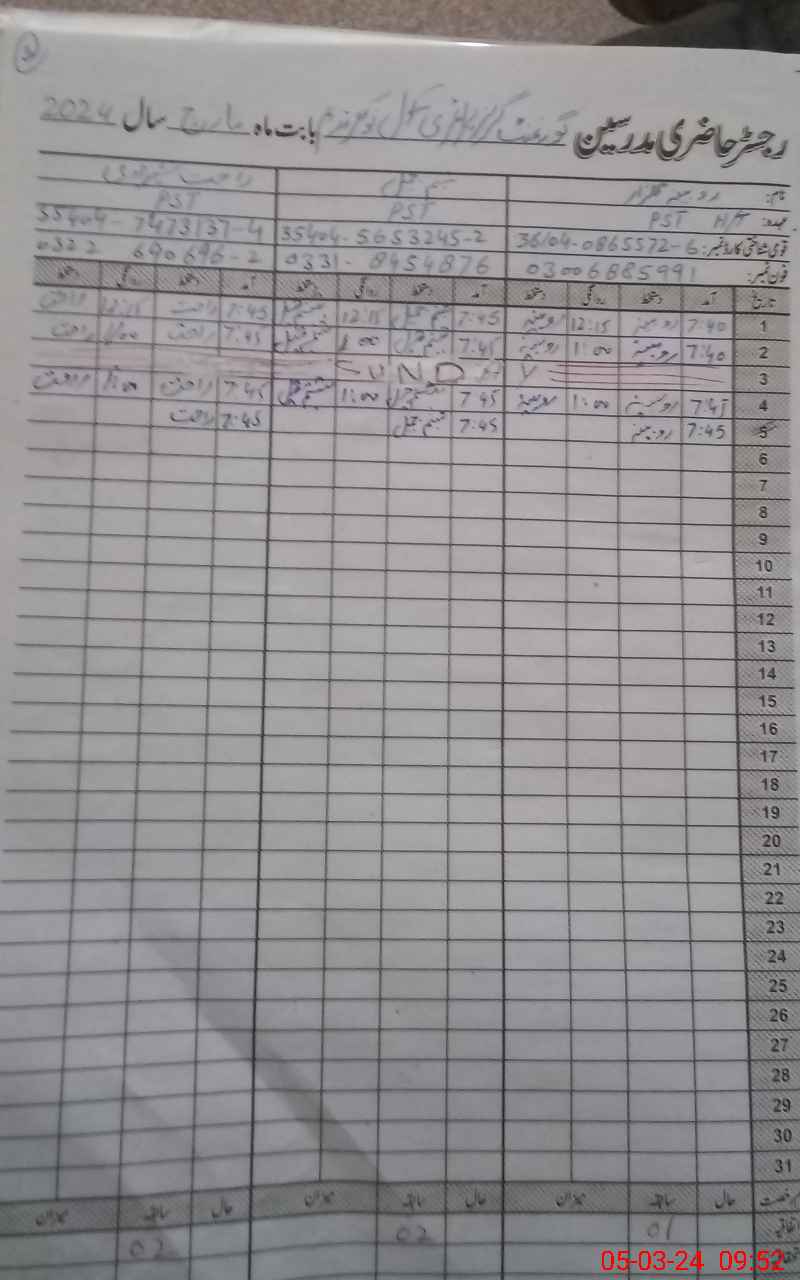 رجسٹر حاضری مدرسین گورنمنٹ گرلز پرائمری سکول بابت ماہ مارچ سال 2024
نام: روبینہ گلزار
عہدہ: PST H/T PST PST
قومی شناختی کارڈ نمبر: 36104-0865572-6 35404-5653245-2 35404-7473137-4
فون نمبر: 03006885991 0331-8454876 0322 690696-2
تاریخ آمد دستخط روانگی دستخط آمد دستخط روانگی دستخط آمد دستخط روانگی دستخط
1 7:40 روبینہ 12:15 روبینہ 7:45 12:15 7:45 راحت 12:15 راحت
2 7:40 روبینہ 1:00 روبینہ 7:45 1:00 7:45 راحت 1:00 راحت
3 SUNDAY
4 7:45 روبینہ 1:00 روبینہ 7:45 1:00 7:45 راحت 1:00 راحت
5 7:45 روبینہ 7:45 7:45 راحت
6
7
8
9
10
11
12
13
14
15
16
17
18
19
20
21
22
23
24
25
26
27
28
29
30
31
رخصت حال سابقہ میزان حال سابقہ میزان حال سابقہ میزان
اتفاقیہ 01 02 02
05-03-24 09:52